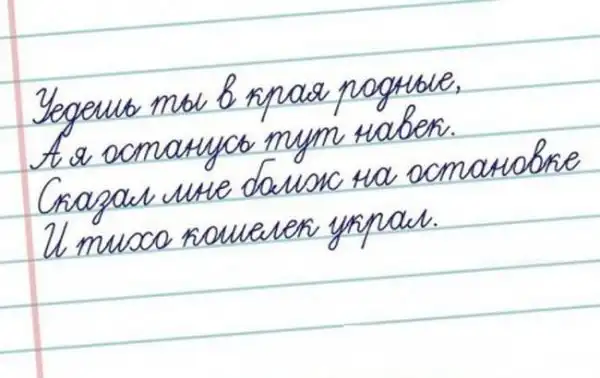 Уедешь ты в края родные,
А я останусь тут навек.
Сказал мне бомж на остановке
И тихо кошелек украл.